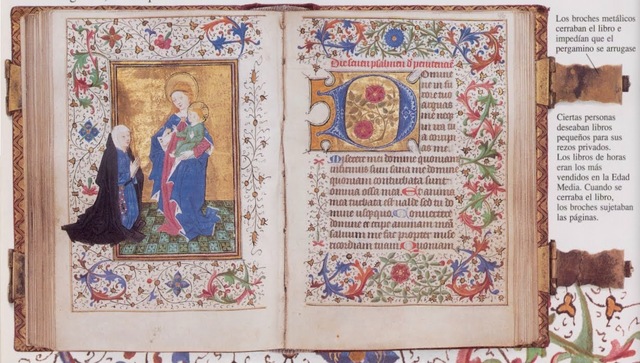 Los broches metálicos
cerraban el libro e
impedían que el
pergamino se arrugase
Ciertas personas
deseaban libros
pequeños para sus
rezos privados.
Los libros de horas
eran los más
vendidos en la Edad
Media. Cuando se
cerraba el libro,
los broches sujetaban
las páginas.
psalmen d penitencie
D
omine
ne in fu
rore tuo
arguas
me
as me
Miserere mei domine quoniam
infirmus sum sana me domine
quoniam conturbata sunt
omnia ossa mea Et anima
mea turbata est valde sed tu do
mine Convertere
domine et eripe animam meam
salvum me fac propter mise
ricordiam tuam Quoniam